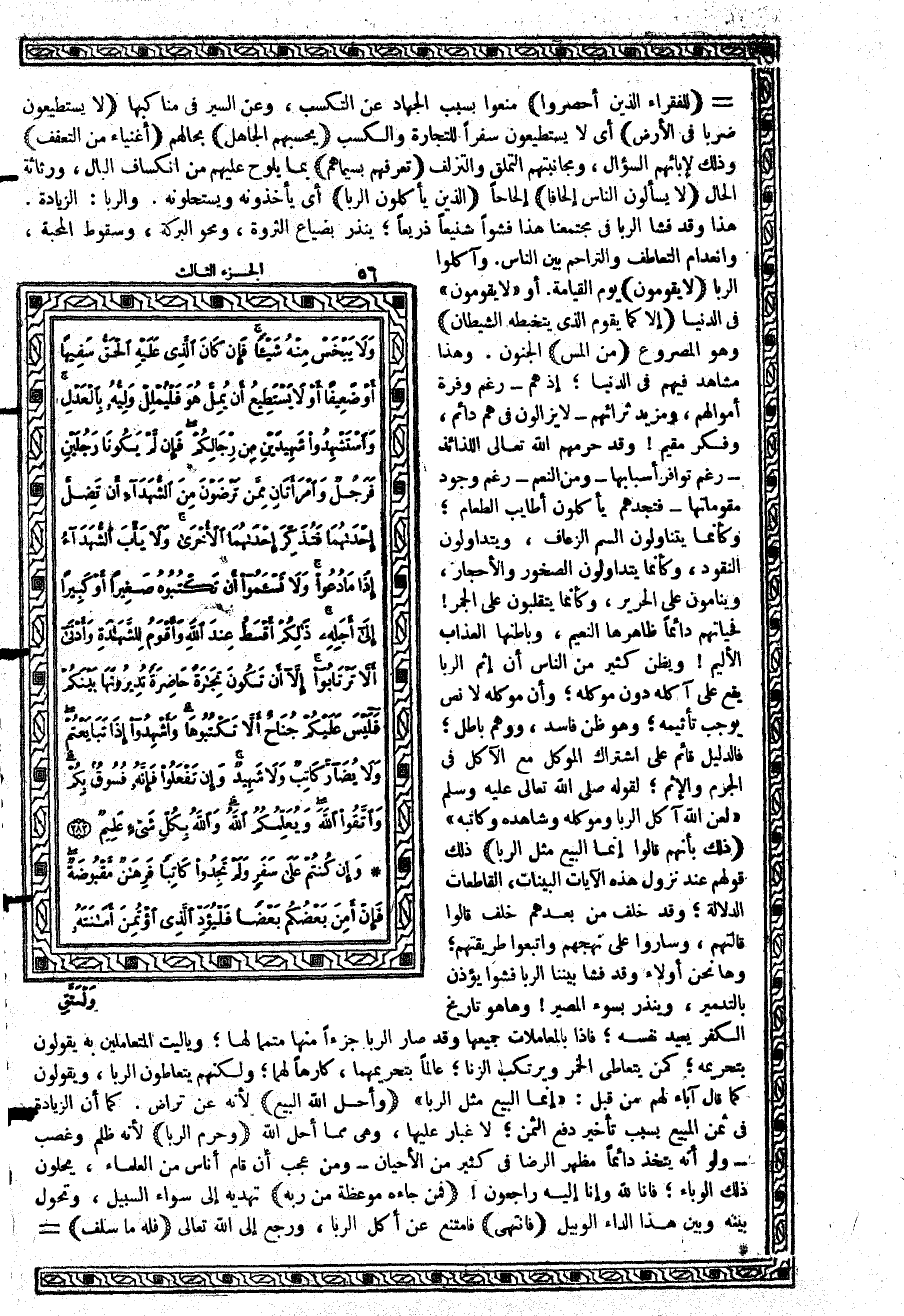 = (للفقراء الذين أحصروا) منعوا بسبب الجهاد عن التكسب ، وعن السير فى مناكبها (لا يستطيعون
ضربا فى الأرض) أى لا يستطيعون سفراً للتجارة والكسب (يحسبهم الجاهل) بحالهم (أغنياء من التعفف)
وذلك لإبائهم السؤال ، ومجانبتهم التملق والتزلف (تعرفهم بسيماهم) بما يلوح عليهم من انكساف البال ، ورثاثة
الحال (لا يسألون الناس إلحافا) إلحاحاً (الذين يأكلون الربا) أى يأخذونه ويستحلونه . والربا : الزيادة .
هذا وقد فشا الربا فى مجتمعنا هذا فشواً شنيعاً ذريعاً ؛ ينذر بضياع الثروة ، ومحو البركة ، وسقوط المحبة ،
وانعدام التعاطف والتراحم بين الناس. وآكلوا
الربا (لا يقومون) يوم القيامة. أو «لا يقومون»
فى الدنيا (إلا كما يقوم الذى يتخبطه الشيطان)
وهو المصروع (من المس) الجنون . وهذا
مشاهد فيهم فى الدنيا ؛ إذ هم ــ رغم وفرة
أموالهم ، ومزيد ثرائهم ــ لا يزالون فى هم دائم ،
وفكر مقيم ! وقد حرمهم الله تعالى اللذائذ
ــ رغم توافر أسبابها ــ ومن النعم ــ رغم وجود
مقوماتها ــ فتجدهم يأكلون أطايب الطعام ؛
وكأنما يتناولون السم الزعاف ، ويتداولون
النقود ، وكأنما يتداولون الصخور والأحجار ،
وينامون على الحرير ، وكأنما يتقلبون على الجمر !
فحياتهم دائماً ظاهرها النعيم ، وباطنها العذاب
الأليم ! ويظن كثير من الناس أن إثم الربا
يقع على آكله دون موكله ؛ وأن موكله لا نص
يوجب تأثيمه ؛ وهو ظن فاسد ، ووهم باطل ؛
فالدليل قائم على اشتراك الموكل مع الآكل فى
الجرم والإثم ؛ لقوله صلى الله تعالى عليه وسلم
«لعن الله آكل الربا وموكله وشاهده وكاتبه»
(ذلك بأنهم قالوا إنما البيع مثل الربا) ذلك
قولهم عند نزول هذه الآيات البينات، القاطعات
الدلالة ؛ وقد خلف من بعدهم خلف قالوا
قالتهم ، وساروا على نهجهم واتبعوا طريقتهم ؛
وها نحن أولاء وقد فشا بيننا الربا فشوا يؤذن
بالتدمير ، وينذر بسوء المصير ! وهاهو تاريخ
الجزء الثالث ٥٦
وَلَا يَبْخَسْ مِنْهُ شَيْـًٔا فَإِن كَانَ ٱلَّذِى عَلَيْهِ ٱلْحَقُّ سَفِيهًا
أَوْ ضَعِيفًا أَوْ لَا يَسْتَطِيعُ أَن يُمِلَّ هُوَ فَلْيُمْلِلْ وَلِيُّهُۥ بِٱلْعَدْلِ
وَٱسْتَشْهِدُوا۟ شَهِيدَيْنِ مِن رِّجَالِكُمْ فَإِن لَّمْ يَكُونَا رَجُلَيْنِ
فَرَجُلٌ وَٱمْرَأَتَانِ مِمَّن تَرْضَوْنَ مِنَ ٱلشُّهَدَآءِ أَن تَضِلَّ
إِحْدَىٰهُمَا فَتُذَكِّرَ إِحْدَىٰهُمَا ٱلْأُخْرَىٰ وَلَا يَأْبَ ٱلشُّهَدَآءُ
إِذَا مَا دُعُوا۟ وَلَا تَسْـَٔمُوٓا۟ أَن تَكْتُبُوهُ صَغِيرًا أَوْ كَبِيرًا
إِلَىٰٓ أَجَلِهِۦ ذَٰلِكُمْ أَقْسَطُ عِندَ ٱللَّهِ وَأَقْوَمُ لِلشَّهَٰدَةِ وَأَدْنَىٰٓ
أَلَّا تَرْتَابُوٓا۟ إِلَّآ أَن تَكُونَ تِجَٰرَةً حَاضِرَةً تُدِيرُونَهَا بَيْنَكُمْ
فَلَيْسَ عَلَيْكُمْ جُنَاحٌ أَلَّا تَكْتُبُوهَا وَأَشْهِدُوٓا۟ إِذَا تَبَايَعْتُمْ
وَلَا يُضَآرَّ كَاتِبٌ وَلَا شَهِيدٌ وَإِن تَفْعَلُوا۟ فَإِنَّهُۥ فُسُوقٌۢ بِكُمْ
وَٱتَّقُوا۟ ٱللَّهَ وَيُعَلِّمُكُمُ ٱللَّهُ وَٱللَّهُ بِكُلِّ شَىْءٍ عَلِيمٌ ٢٨٢
* وَإِن كُنتُمْ عَلَىٰ سَفَرٍ وَلَمْ تَجِدُوا۟ كَاتِبًا فَرِهَٰنٌ مَّقْبُوضَةٌ
فَإِنْ أَمِنَ بَعْضُكُم بَعْضًا فَلْيُؤَدِّ ٱلَّذِى ٱؤْتُمِنَ أَمَٰنَتَهُۥ
وَلْيَتَّقِ
الكفر يعيد نفسه ؛ فاذا بالمعاملات جميعها وقد صار الربا جزءاً منها متمما لها ؛ وياليت المتعاملين به يقولون
بتحريمه ؛ كمن يتعاطى الخمر ويرتكب الزنا ؛ عالماً بتحريمهما ، كارهاً لهما ؛ ولكنهم يتعاطون الربا ، ويقولون
كما قال آباء لهم من قبل : «إنما البيع مثل الربا» (وأحل الله البيع) لأنه عن تراض . كما أن الزيادة
فى ثمن المبيع بسبب تأخير دفع الثمن ؛ لا غبار عليها ، وهى مما أحل الله (وحرم الربا) لأنه ظلم وغصب
ــ ولو أنه يتخذ دائماً مظهر الرضا فى كثير من الأحيان ــ ومن عجب أن قام أناس من العلماء ، يحلون
ذلك الوباء ؛ فانا لله وإنا إليه راجعون ! (فمن جاءه موعظة من ربه) تهديه إلى سواء السبيل ، وتحول
بينه وبين هذا الداء الوبيل (فانتهى) فامتنع عن أكل الربا ، ورجع إلى الله تعالى (فله ما سلف) =
*